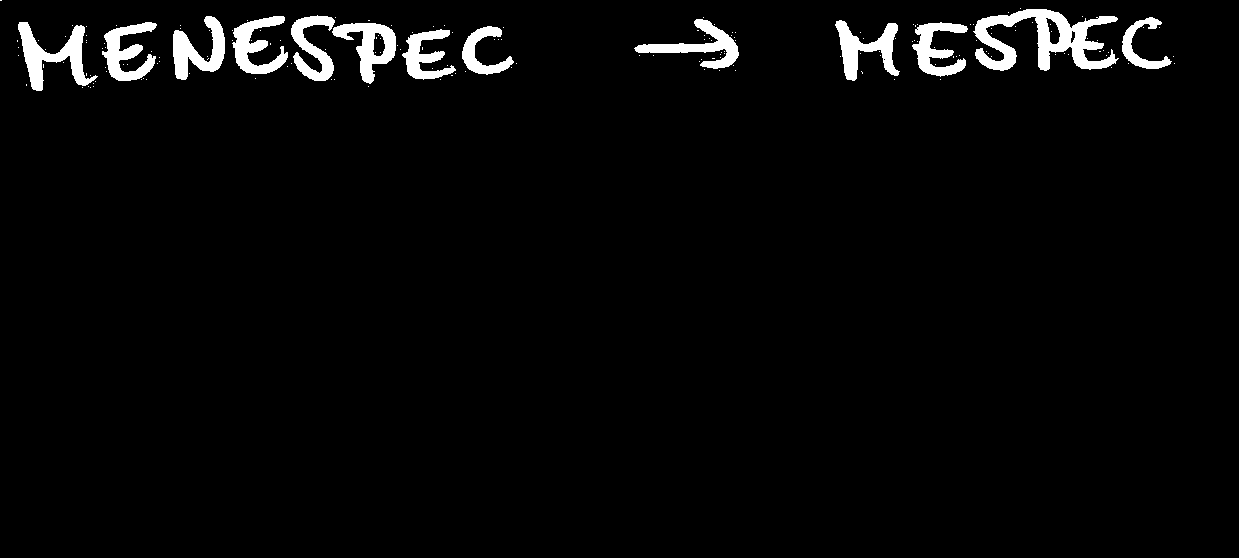 MENESPEC → MESPEC